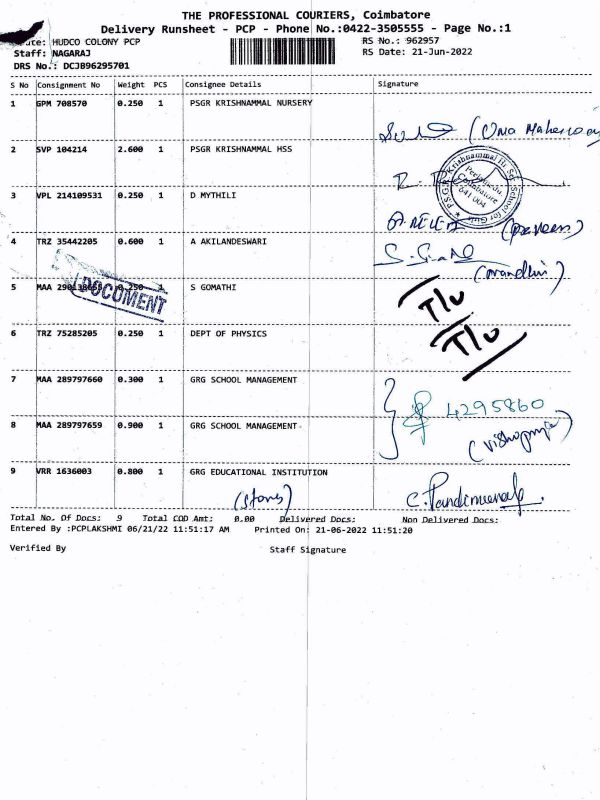 THE PROFESSIONAL COURIERS, Coimbatore
Delivery Runsheet - PCP - Phone No.:0422-3505555 - Page No.:1
HUDCO COLONY PCP RS No.: 962957
Staff: NAGARAJ RS Date: 21-Jun-2022
DRS No.: DCJB96295701
S No Consignment No Weight PCS Consignee Details Signature
1 GPM 708570 0.250 1 PSGR KRISHNAMMAL NURSERY
2 SVP 104214 2.600 1 PSGR KRISHNAMMAL HSS
P.S.G.R. Krishnammal Hr. Sec. School for Girls
Peelamedu,
Coimbatore
641 004
3 VPL 214109531 0.250 1 D MYTHILI
(praveen)
4 TRZ 35442205 0.600 1 A AKILANDESWARI
5 MAA 0.250 1 S GOMATHI
DOCUMENT
T/U
6 TRZ 75285205 0.250 1 DEPT OF PHYSICS
T/U
7 MAA 289797660 0.300 1 GRG SCHOOL MANAGEMENT
4295860
8 MAA 289797659 0.900 1 GRG SCHOOL MANAGEMENT
9 VRR 1636003 0.800 1 GRG EDUCATIONAL INSTITUTION
(Stores)
Total No. Of Docs: 9 Total COD Amt: 0.00 Delivered Docs: Non Delivered Docs:
Entered By :PCPLAKSHMI 06/21/22 11:51:17 AM Printed On: 21-06-2022 11:51:20
Verified By Staff Signature